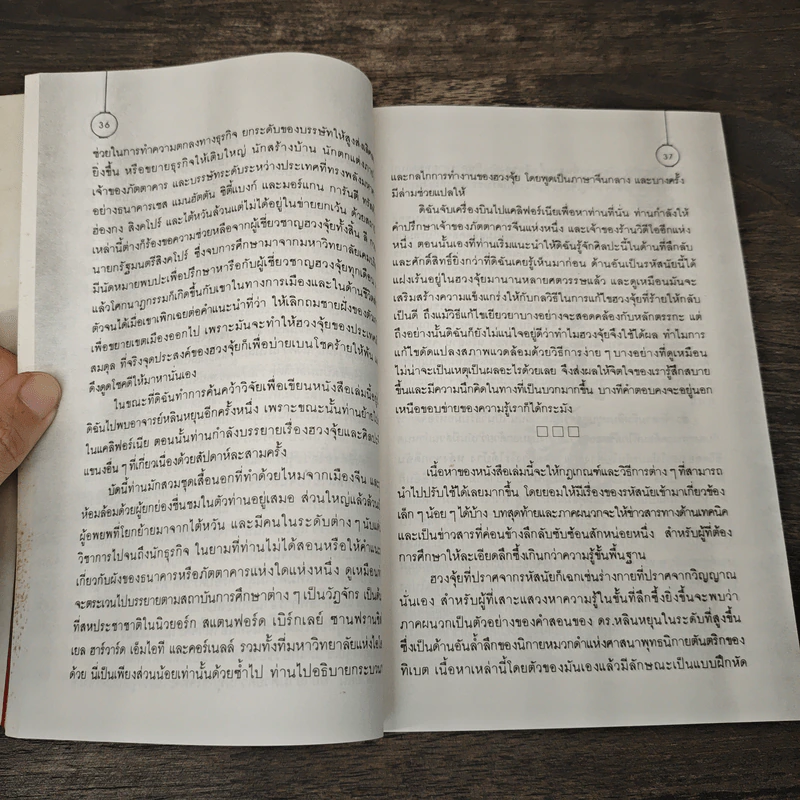 36
ช่วยในการทำความตกลงทางธุรกิจ ยกระดับของบริษัทให้สูงส่ง
ยิ่งขึ้น หรือขยายธุรกิจให้เติบใหญ่ นักสร้างบ้าน นักตกแต่ง
เจ้าของภัตตาคาร และบรรษัทระดับระหว่างประเทศที่ทรงพลัง
อย่างธนาคารเชส แมนฮัตตัน ซิตี้แบงก์ และมอร์แกน การันตี
ฮ่องกง สิงคโปร์ และไต้หวันล้วนแต่ไม่ได้อยู่ในข่ายยกเว้น ด้วย
เหล่านี้ต่างก็ร้องขอความช่วยเหลือจากผู้เชี่ยวชาญฮวงจุ้ยทั้งสิ้น ลี
นายกรัฐมนตรีสิงคโปร์ ซึ่งจบการศึกษามาจากมหาวิทยาลัย
มีนัดหมายพบปะเพื่อปรึกษาหารือกับผู้เชี่ยวชาญฮวงจุ้ยทุกเดือน
แล้วโศกนาฏกรรมก็เกิดขึ้นกับเขาในทางการเมืองและในด้าน
ตัวจนได้เมื่อเขาเพิกเฉยต่อคำแนะนำที่ว่า ให้เลิกถมชายฝั่งของ
เพื่อขยายเขตเมืองออกไป เพราะมันจะทำให้ฮวงจุ้ยของประเทศ
สมดุล ที่จริงจุดประสงค์ของฮวงจุ้ยก็เพื่อบ่ายเบนโชคร้ายให้พ้น
ดึงดูดโชคดีให้มาหานั่นเอง
ในขณะที่ดิฉันทำการค้นคว้าวิจัยเพื่อเขียนหนังสือเล่มนี้
ดิฉันไปพบอาจารย์หลินหยุนอีกครั้งหนึ่ง เพราะขณะนั้นท่านย้าย
ในแคลิฟอร์เนีย ตอนนั้นท่านกำลังบรรยายเรื่องฮวงจุ้ยและศิลปะ
แขนงอื่น ๆ ที่เกี่ยวเนื่องด้วยสัปดาห์ละสามครั้ง
บัดนี้ท่านมักสวมชุดเสื้อนอกที่ทำด้วยไหมจากเมืองจีน และ
ห้อมล้อมด้วยผู้ยกย่องชื่นชมในตัวท่านอยู่เสมอ ส่วนใหญ่แล้วล้วน
ผู้อพยพที่โยกย้ายมาจากไต้หวัน และมีคนในระดับต่าง ๆ นับแต่
วิชาการไปจนถึงนักธุรกิจ ในยามที่ท่านไม่ได้สอนหรือให้คำ
เกี่ยวกับผังของธนาคารหรือภัตตาคารแห่งใดแห่งหนึ่ง ดูเหมือน
จะตระเวนไปบรรยายตามสถาบันการศึกษาต่าง ๆ เป็นวัฏจักร เป็นต้น
ที่สหประชาชาติในนิวยอร์ก สแตนฟอร์ด เบิร์กเลย์ ซานฟรานซิส
เยล ฮาร์วาร์ด เอ็มไอที และคอร์เนลล์ รวมทั้งที่มหาวิทยาลัยแห่ง
ด้วย นี่เป็นเพียงส่วนน้อยเท่านั้นด้วยซ้ำไป ท่านไปอธิบายกระบวน
37
และกลไกการทำงานของฮวงจุ้ย โดยพูดเป็นภาษาจีนกลาง และบางครั้ง
มีล่ามช่วยแปลให้
ดิฉันจับเครื่องบินไปแคลิฟอร์เนียเพื่อหาท่านที่นั่น ท่านกำลังให้
คำปรึกษาเจ้าของภัตตาคารจีนแห่งหนึ่ง และเจ้าของร้านวีดีโออีกแห่ง
หนึ่ง ตอนนั้นเองที่ท่านเริ่มแนะนำให้ดิฉันรู้จักศิลปะนี้ในด้านที่ลึกลับ
และศักดิ์สิทธิ์ยิ่งกว่าที่ดิฉันเคยรู้เห็นมาก่อน ด้านอันเป็นรหัสนัยนี้ได้
แฝงเร้นอยู่ในฮวงจุ้ยมานานหลายศตวรรษแล้ว และดูเหมือนมันจะ
เสริมสร้างความแข็งแกร่งให้กับกลวิธีในการแก้ไขฮวงจุ้ยที่ร้ายให้กลับ
เป็นดี ถึงแม้วิธีแก้ไขเยียวยาบางอย่างจะสอดคล้องกับหลักตรรกะ แต่
ถึงอย่างนั้นดิฉันก็ยังไม่แน่ใจอยู่ดีว่าทำไมฮวงจุ้ยจึงใช้ได้ผล ทำไมการ
แก้ไขดัดแปลงสภาพแวดล้อมด้วยวิธีการง่าย ๆ บางอย่างที่ดูเหมือน
ไม่น่าจะเป็นเหตุเป็นผลอะไรด้วยเลย จึงส่งผลให้จิตใจของเรารู้สึกสบาย
ขึ้นและมีความนึกคิดในทางที่เป็นบวกมากขึ้น บางทีคำตอบคงจะอยู่นอก
เหนือขอบข่ายของความรู้เราก็ได้กระมัง
□□□
เนื้อหาของหนังสือเล่มนี้จะให้กฎเกณฑ์และวิธีการต่าง ๆ ที่สามารถ
นำไปปรับใช้ได้เลยมากขึ้น โดยยอมให้มีเรื่องของรหัสนัยเข้ามาเกี่ยวข้อง
เล็ก ๆ น้อย ๆ ได้บ้าง บทสุดท้ายและภาคผนวกจะให้ข่าวสารทางด้านเทคนิค
และเป็นข่าวสารที่ค่อนข้างลึกลับซับซ้อนสักหน่อยหนึ่ง สำหรับผู้ที่ต้อง
การศึกษาให้ละเอียดลึกซึ้งเกินกว่าความรู้ขั้นพื้นฐาน
ฮวงจุ้ยที่ปราศจากรหัสนัยก็เฉกเช่นร่างกายที่ปราศจากวิญญาณ
นั่นเอง สำหรับผู้ที่เสาะแสวงหาความรู้ในขั้นที่ลึกซึ้งยิ่งขึ้นจะพบว่า
ภาคผนวกเป็นตัวอย่างของคำสอนของ ดร.หลินหยุนในระดับที่สูงขึ้น
ซึ่งเป็นด้านอันล้ำลึกของนิกายหมวกดำแห่งศาสนาพุทธนิกายตันตริกของ
ทิเบต เนื้อหาเหล่านี้โดยตัวของมันเองแล้วมีลักษณะเป็นแบบฝึกหัด